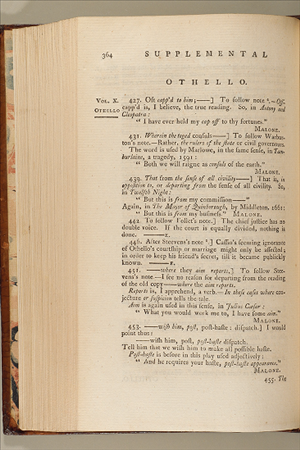 364 SUPPLEMENTAL
OTHELLO.
VOL. X.
OTHELLO
427. Oft capp'd to him;——] To follow note ⁹.—Oft
capp'd is, I believe, the true reading. So, in Antony and
Cleopatra:
"I have ever held my cap off to thy fortunes."
MALONE.
431. Wherein the toged consuls——] To follow Warbur-
ton's note.—Rather, the rulers of the state or civil governours.
The word is used by Marlowe, in the same sense, in Tam-
burlaine, a tragedy, 1591:
"Both we will raigne as consuls of the earth."
MALONE.
439. That from the sense of all civility——] That is, in
opposition to, or departing from the sense of all civility. So,
in Twelfth Night:
"But this is from my commission——"
Again, in The Mayor of Quinborough, by Middleton, 1661:
"But this is from my business." MALONE.
442. To follow Tollet's note.] The chief justice has a
double voice. If the court is equally divided, nothing is
done.
446. After Steevens's note ².] Cassio's seeming ignorance
of Othello's courtship or marriage might only be affected;
in order to keep his friend's secret, till it became publickly
known.
451. ——where they aim reports,] To follow Stee-
vens's note.—I see no reason for departing from the reading
of the old copy—where the aim reports.
Reports is, I apprehend, a verb.—In these cases where con-
jecture or suspicion tells the tale.
Aim is again used in this sense, in Julius Cæsar:
"What you would work me to, I have some aim."
MALONE.
453. ——wish him, post, post-haste: dispatch.] I would
point thus:
——wish him, post, post-haste dispatch.
Tell him that we wish him to make all possible haste.
Post-haste is before in this play used adjectively:
"And he requires your haste, post-haste appearance."
MALONE.
455. The